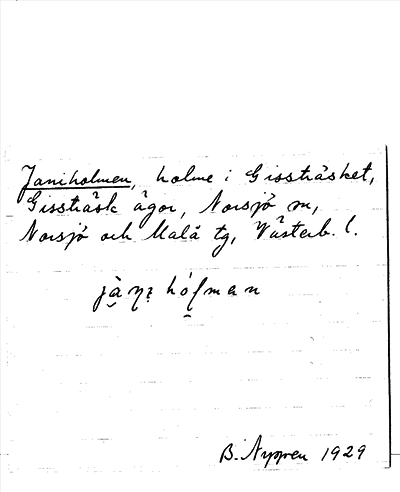 Janiholmen, holme i Gissträsket,
Gissträsk ägor, Norsjö sn,
Norsjö och Malå tg, Västerb. l.
B. Nygren 1929